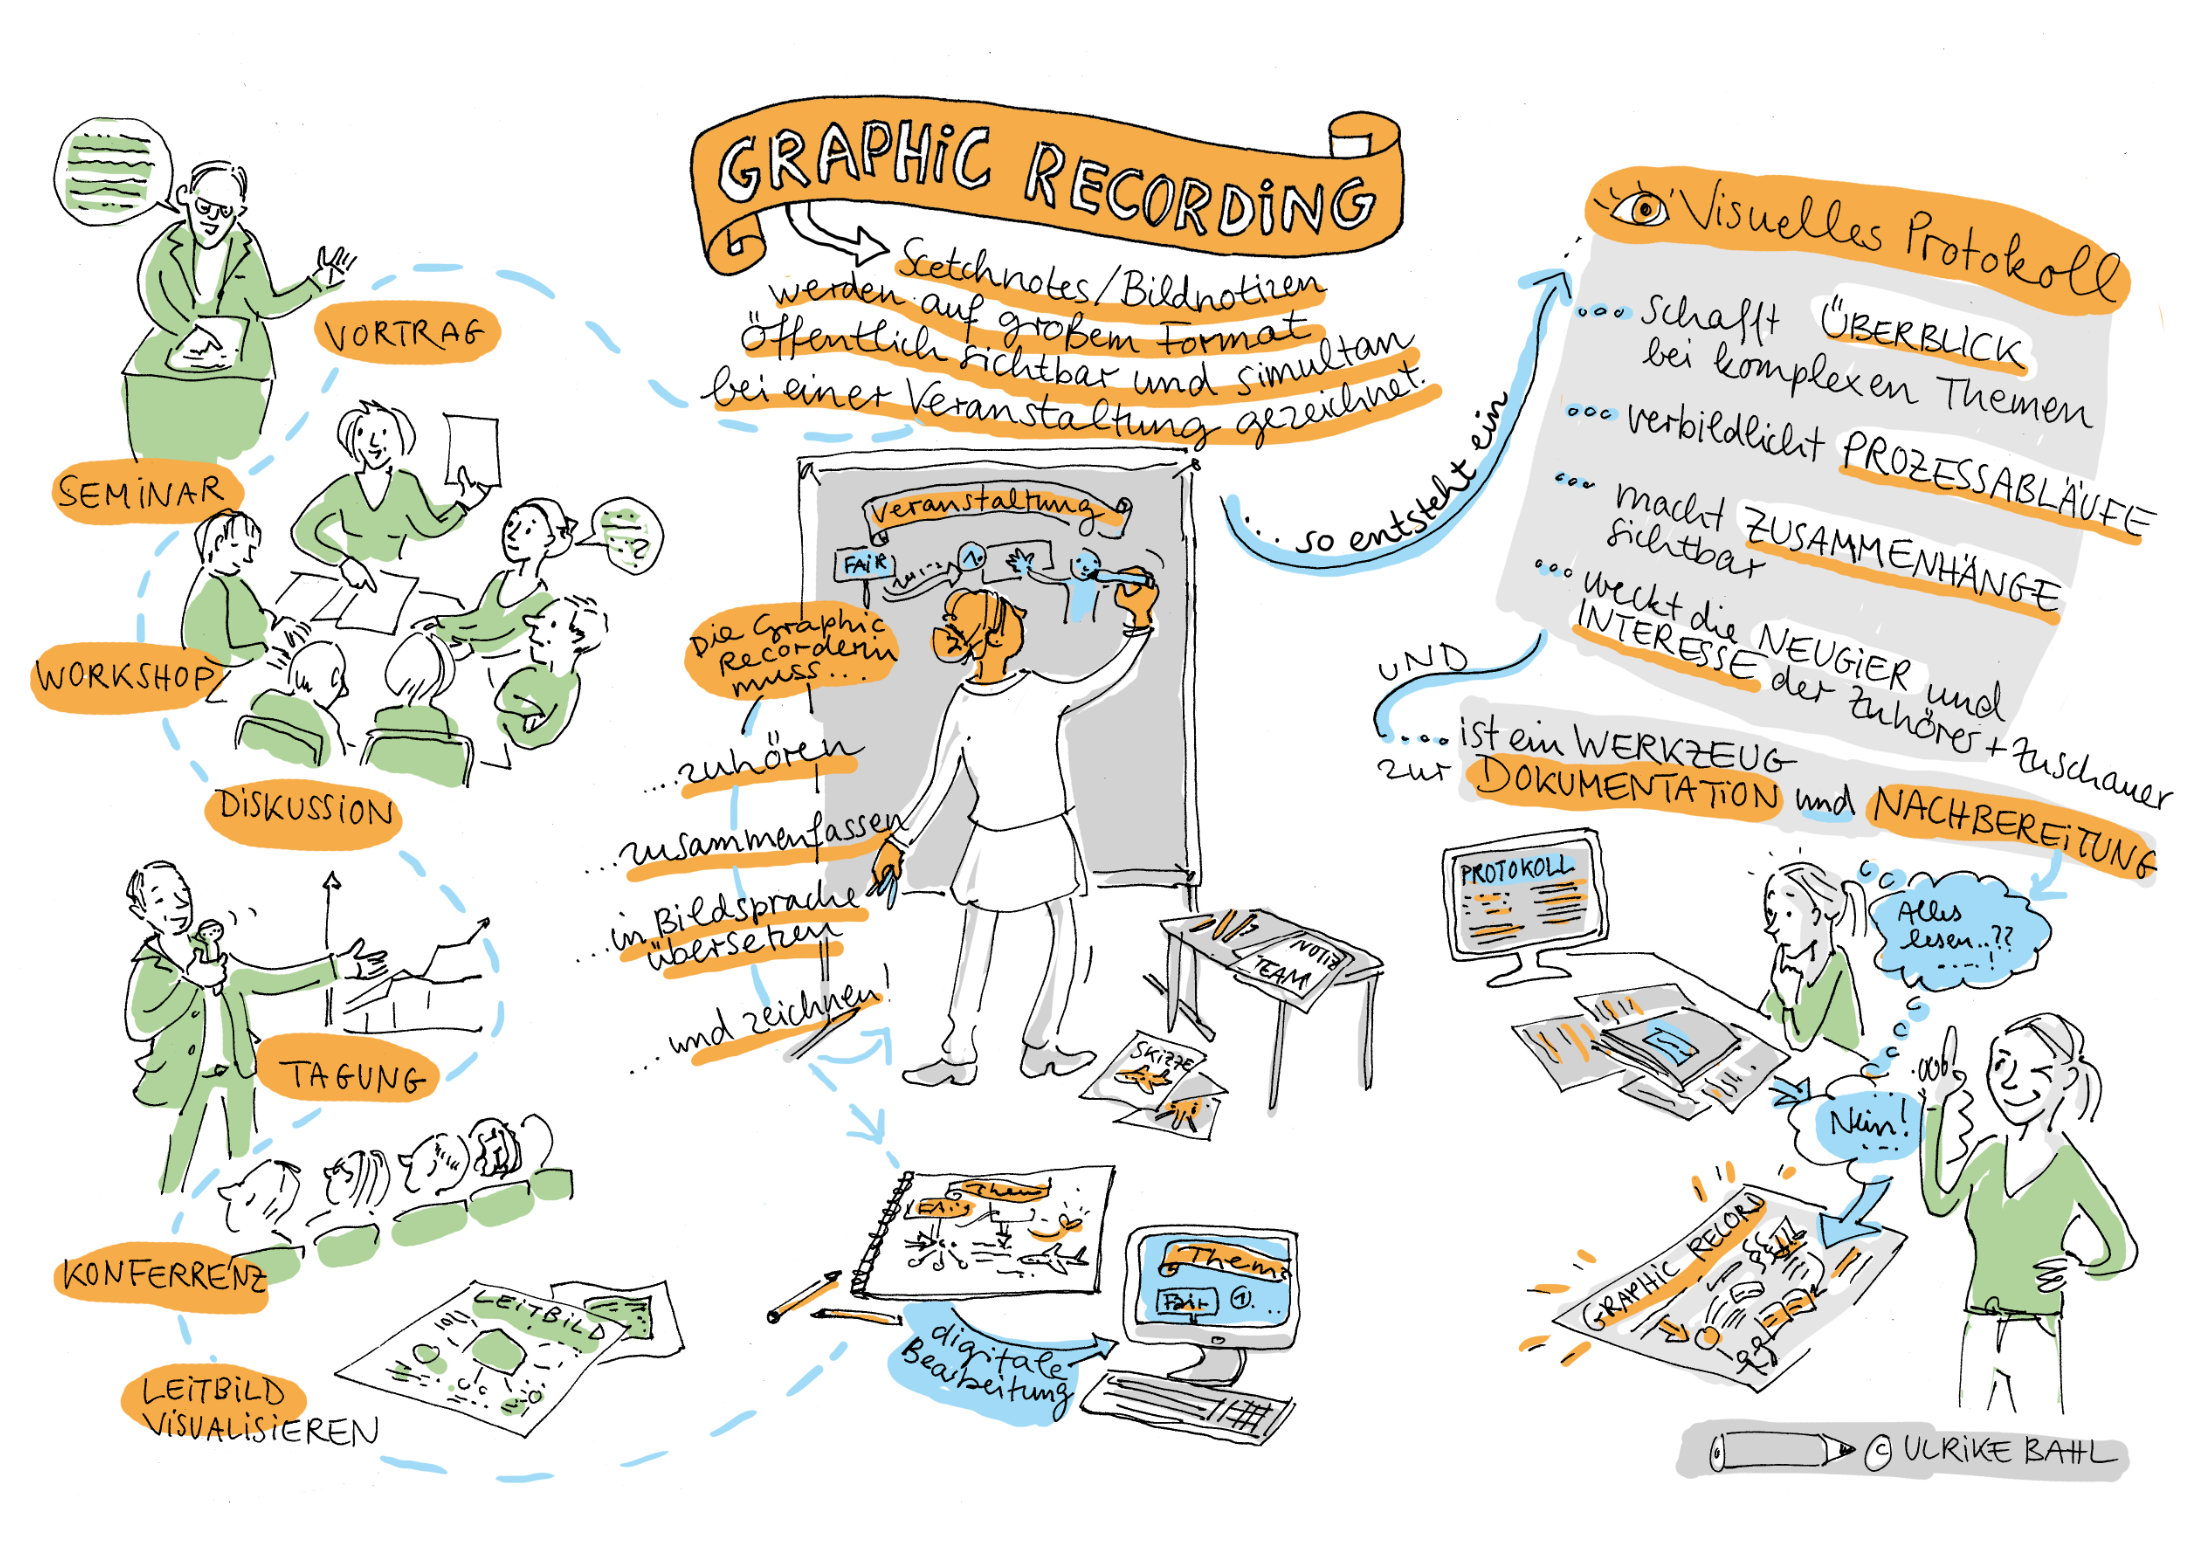 GRAPHIC RECORDING
Scetchnotes/Bildnotizen
werden auf großem Format
öffentlich sichtbar und simultan
bei einer Veranstaltung gezeichnet.
VORTRAG
SEMINAR
WORKSHOP
DISKUSSION
TAGUNG
KONFERRENZ
LEITBILD
VISUALISIEREN
LEITBILD
...?
Veranstaltung
FAIR
1.
Die Graphic
Recorderin
muss...
...zuhören
...zusammenfassen
...in Bildsprache
übersetzen
...und zeichnen!
NOTIZ
TEAM
SKIZZE
Thema
FAIR
digitale
Bearbeitung
Thema
Fair 1. ..
... so entsteht ein
Visuelles Protokoll
... schafft ÜBERBLICK
bei komplexen Themen
... verbildlicht PROZESSABLÄUFE
... macht ZUSAMMENHÄNGE
sichtbar
... weckt die NEUGIER und
INTERESSE der Zuhörer + Zuschauer
UND
.... ist ein WERKZEUG
zur DOKUMENTATION und NACHBEREITUNG
PROTOKOLL
Alles
lesen..??
....!
Nein!
GRAPHIC RECORD
© ULRIKE BAHL